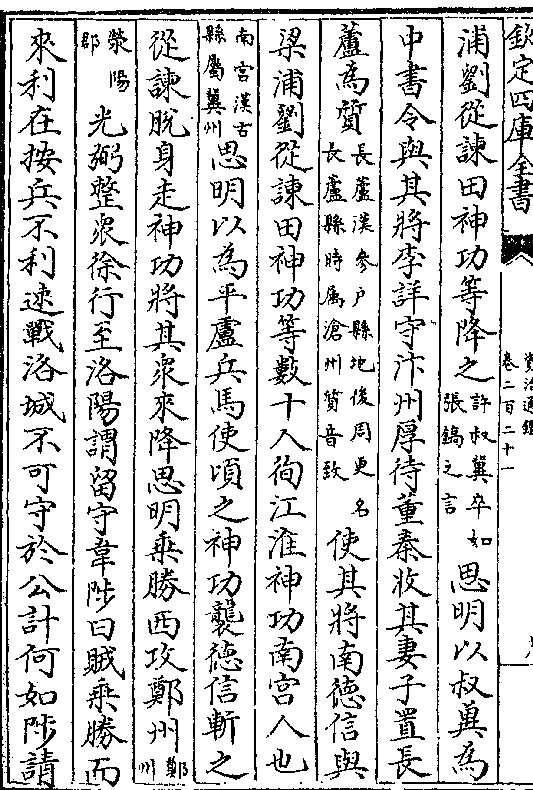 欽定四庫全書
資治通鑑
卷二百二十一
浦劉從諫田神功等降之許叔冀卒如張鎬之言思明以叔冀為
中書令與其將李詳守汴州厚待董秦收其妻子置長
蘆為質長蘆漢參戶縣地後周更名長蘆縣時屬滄州質音致使其將南德信與
梁浦劉從諫田神功等數十人徇江淮神功南宮人也
南宮漢古縣屬冀州思明以為平盧兵馬使頃之神功襲德信斬之
從諫脫身走神功將其衆來降思明乗勝西攻鄭州鄭州
滎陽郡光弼整衆徐行至洛陽謂留守韋陟曰賊乗勝而
來利在按兵不利速戰洛城不可守於公計何如陟請